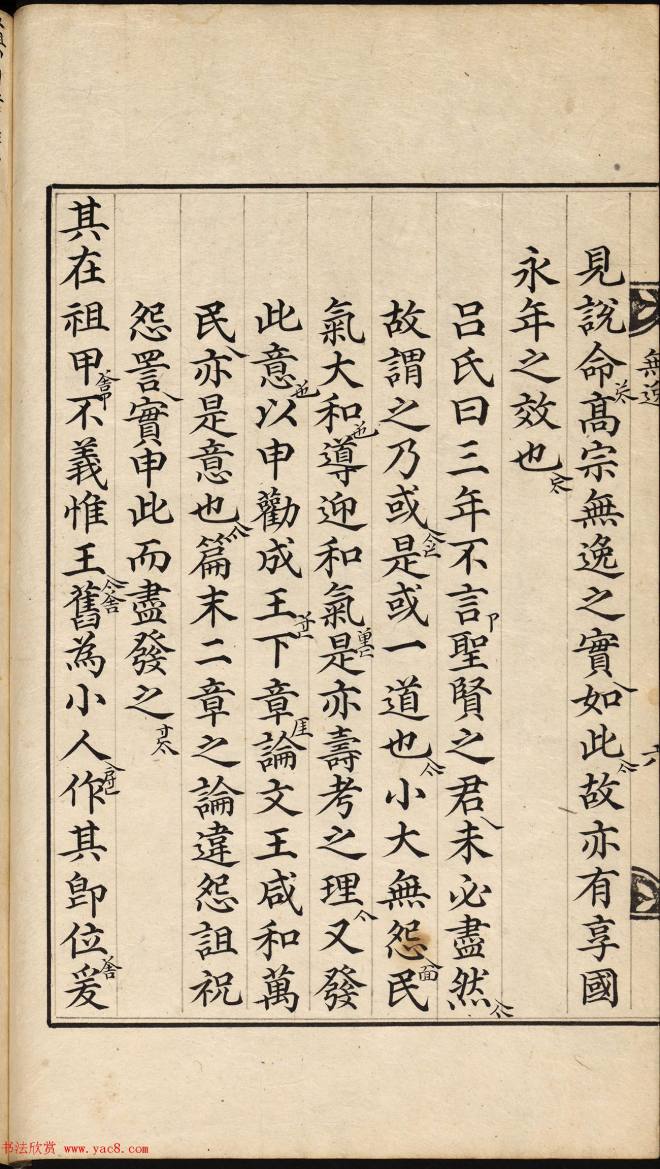 無逸
見說命高宗無逸之實如此故亦有享國
永年之效也
呂氏曰三年不言聖賢之君未必盡然
故謂之乃或是或一道也小大無怨民
氣大和導迎和氣是亦壽考之理又發
此意以申勸成王下章論文王咸和萬
民亦是意也篇末二章之論違怨詛祝
怨詈實申此而盡發之
其在祖甲不義惟王舊為小人作其卽位爰
书法欣赏 www.yac8.com